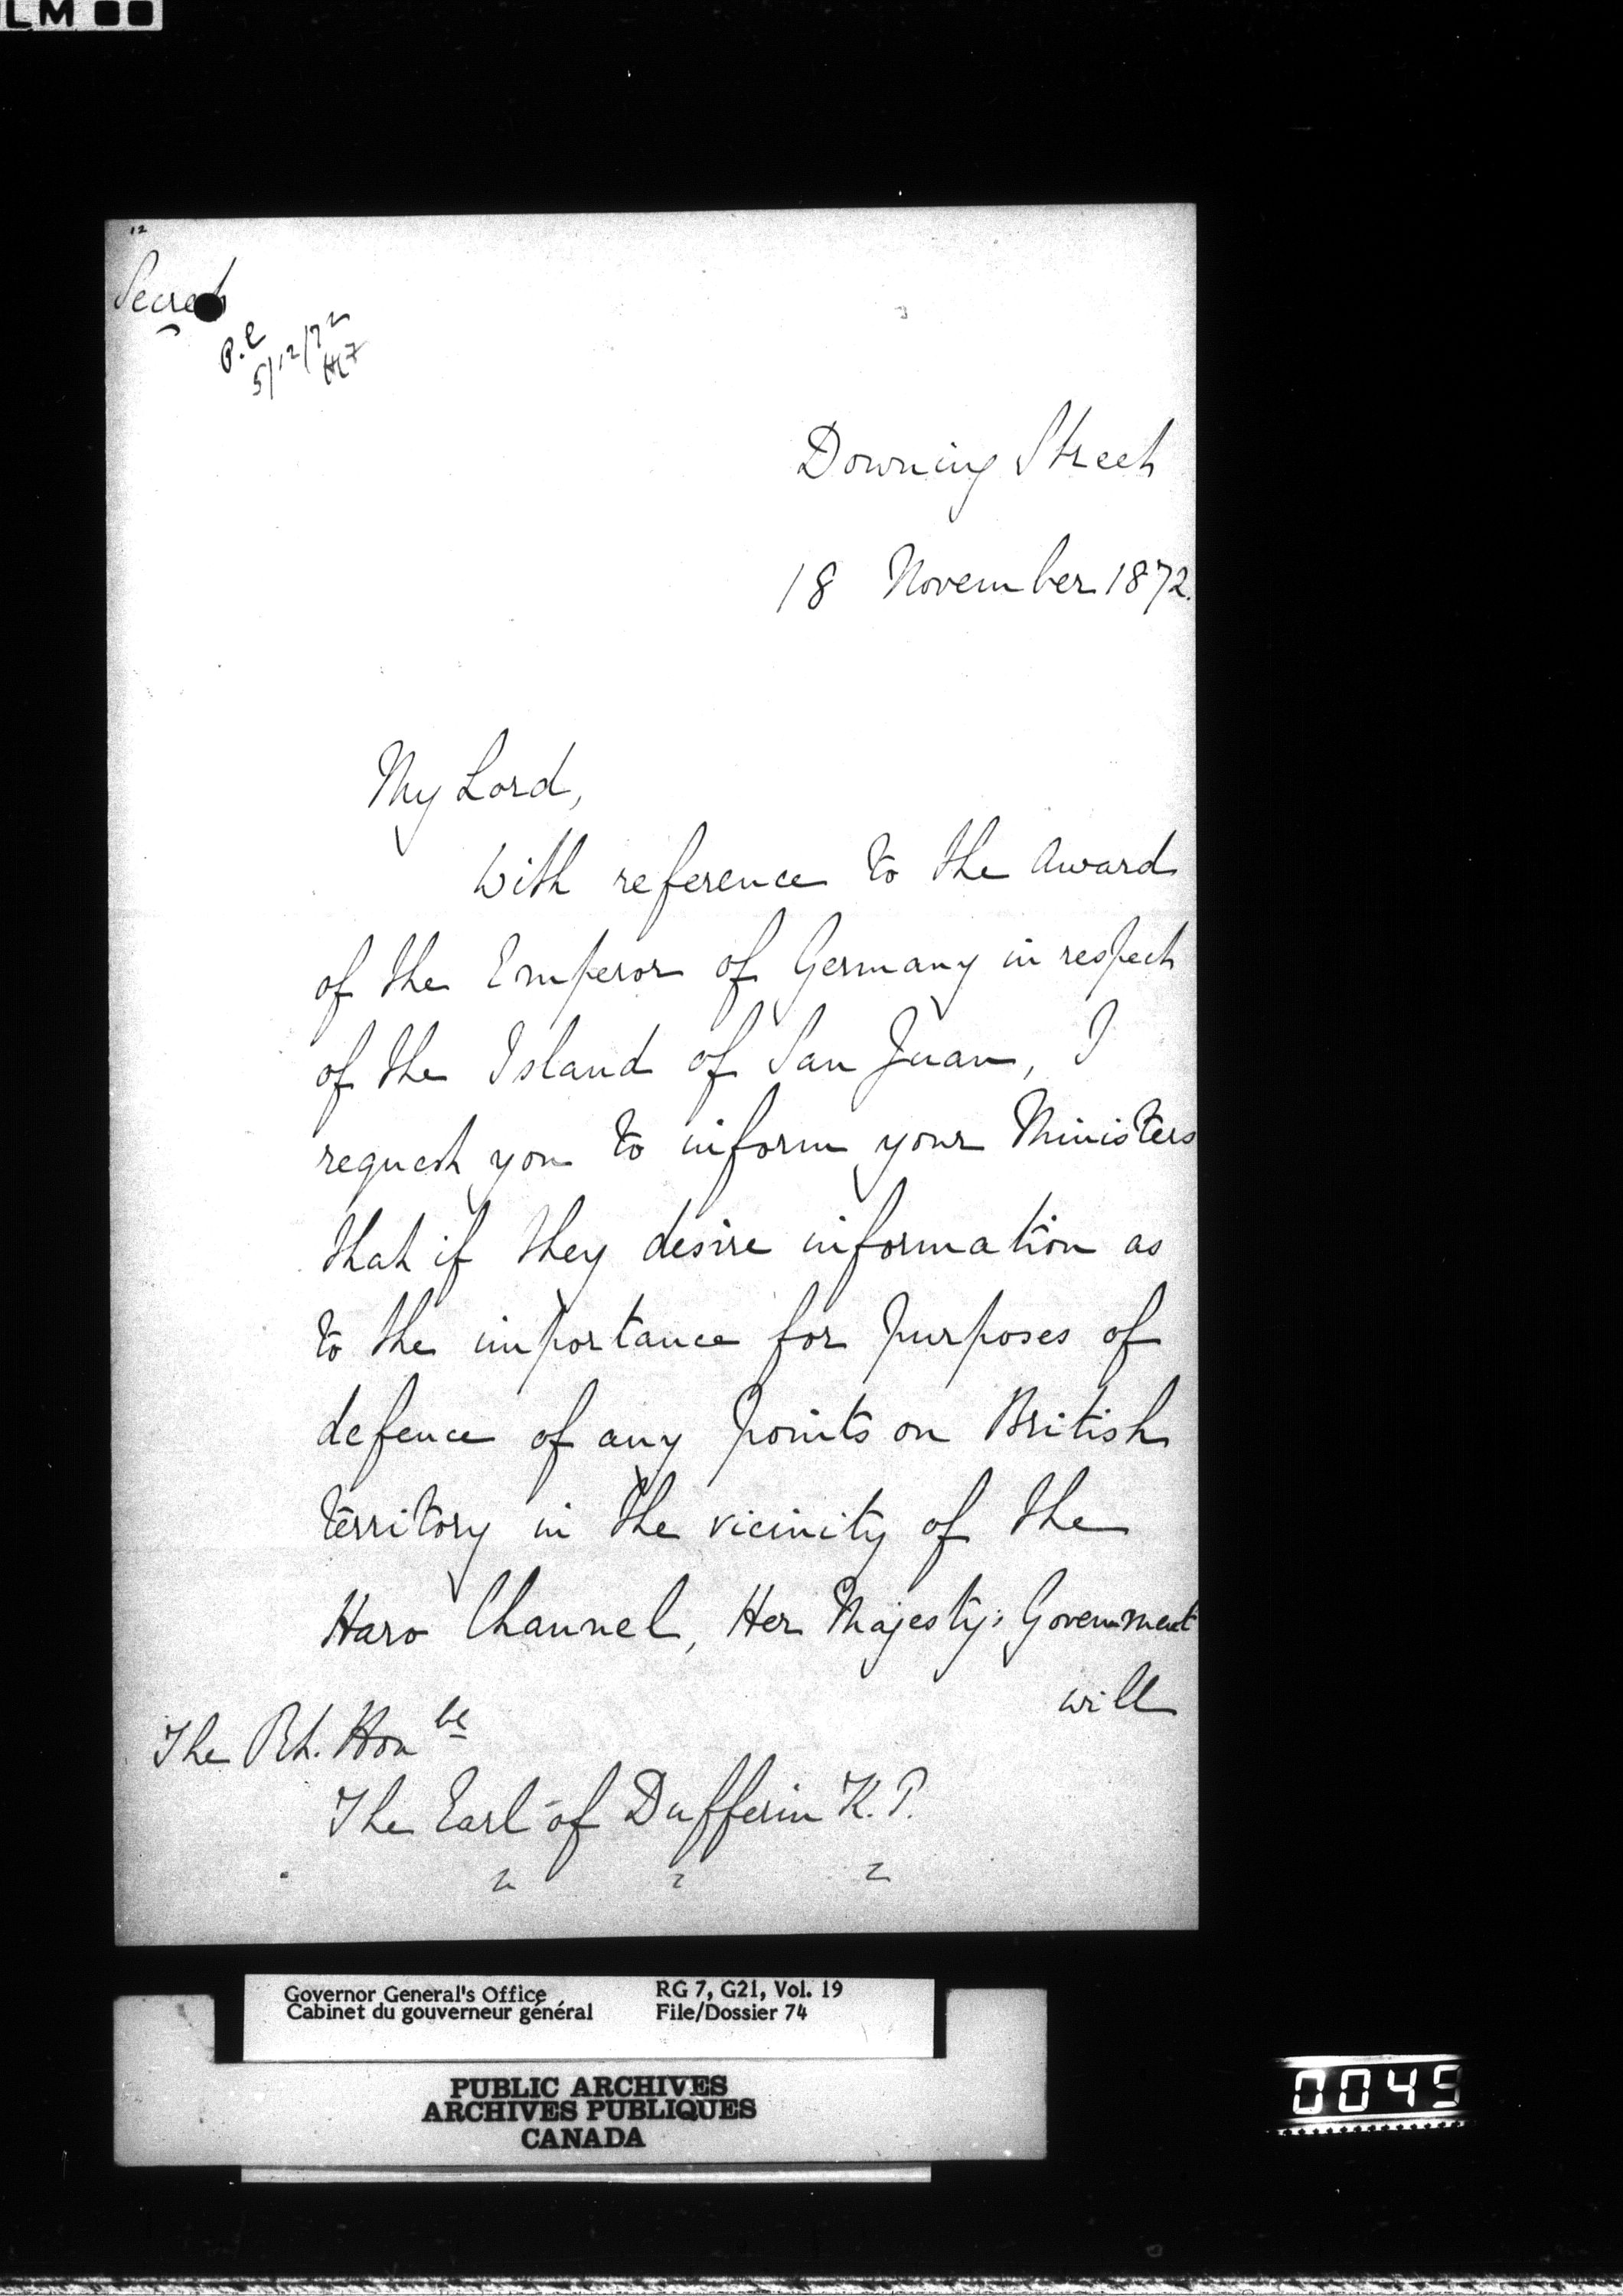 LM
12
Secret
P.C
5/12/72
Downing Street
18 November 1872.
My Lord,
With reference to the Award
of the Emperor of Germany in respect
of the Island of San Juan, I
request you to inform your Ministers
that if they desire information as
to the importance for purposes of
defence of any points on British
territory in the vicinity of the
Haro Channel, Her Majesty's Government
will
The Rt. Honble
The Earl of Dufferin K.P.
Governor General's Office
Cabinet du gouverneur général
RG 7, G21, Vol. 19
File/Dossier 74
PUBLIC ARCHIVES
ARCHIVES PUBLIQUES
CANADA
0045